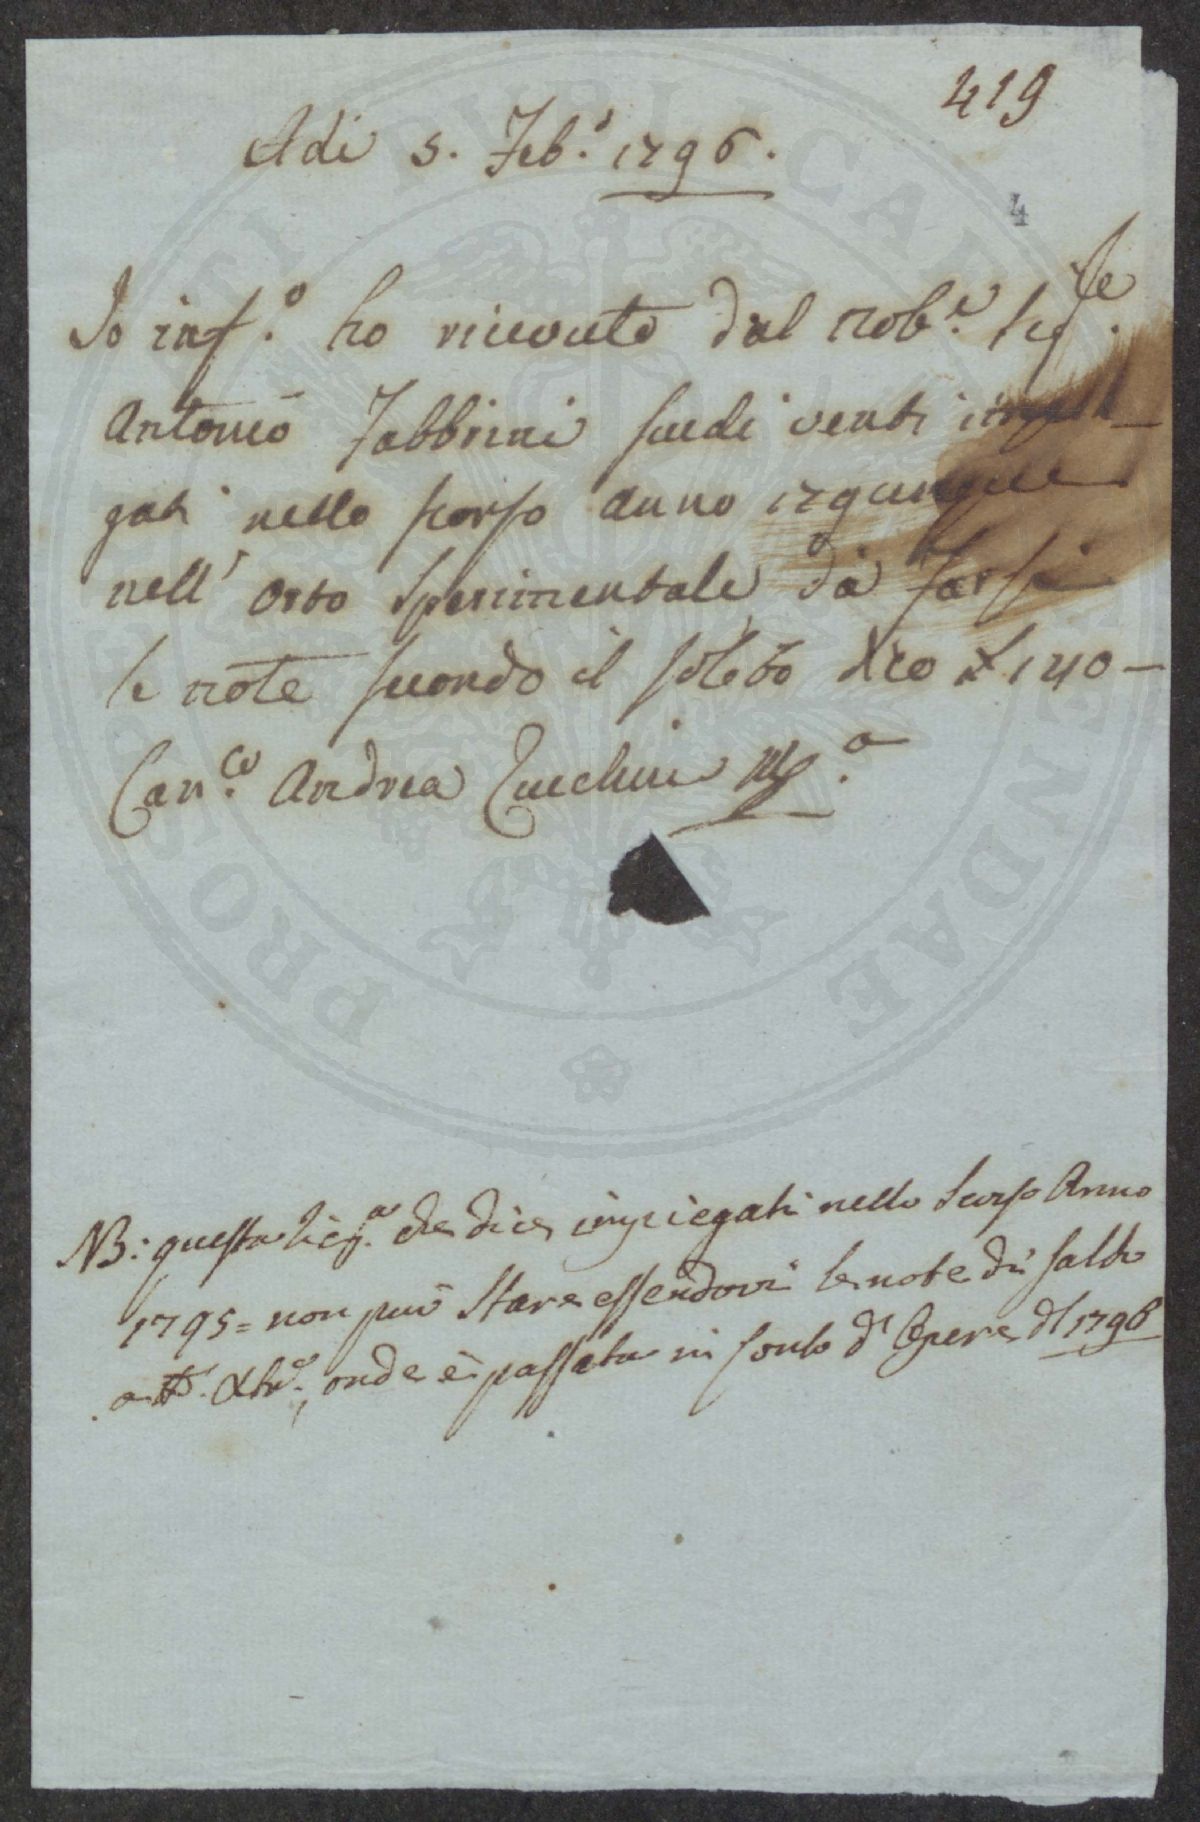 419
Adi 5. Feb.º 1796.
4
Io inf.º ho ricevuto dal Nob.e Sig.re
Antonio Fabbrini scudi venti impie
gati nello scorso anno
nell' Orto Sperimentale da farsi
le note secondo il solito dico £ 140 –
Can.co Andrea Zucchini M.º a
NB: questa Ric.a che dice impiegati nello Scorso Anno
1795 = non può Stare essendovi le note di saldo
a Xbr.e, onde è passata in conto d' Opere dl 1796
PROSPERITATI PUBLICAE AUGENDAE